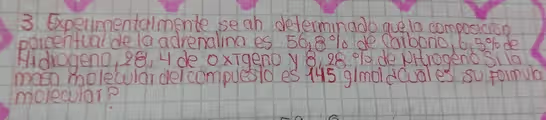 3 Experimentalmente se ah determinado que la composición
porcentual de la adrenalina es 56,8% de Carbono, 6,5% de
Hidrogeno, 28,4 de oxigeno y 8,28 % de Nitrogeno Si la
masa molecular del compuesto es 145 g/mol ¿cual es su formula
molecular?